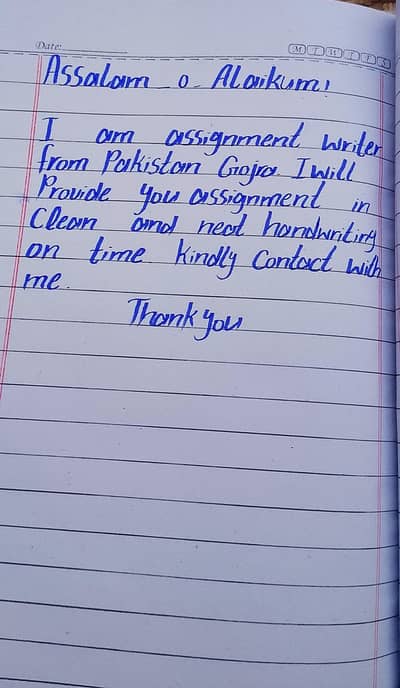 Date:
M T W T F S
Assalam o Alaikum!
I am assignment writer
from Pakistan Gojra I will
Provide you assignment in
Clean and neat handwriting
on time kindly Contact with
me.
Thank you